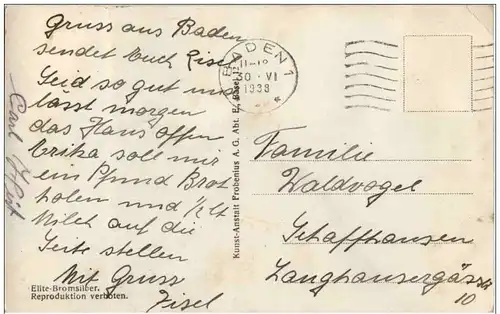 Gruss aus Baden
sendet Euch Lisel
Seid so gut und
lasst morgen
das Haus offen
Erika soll mir
ein Pfund Brot
holen und 1/2 lt
Milch auf die
Seite stellen
Mit Gruss
Lisel
Elite-Bromsilber.
Reproduktion verboten.
Kunst-Anstalt Frobenius A. G. Abt. E, Basel
BADEN 1
30 · VI
1938
Familie
Waldvogel
Schaffhausen
Langhausergässli
10